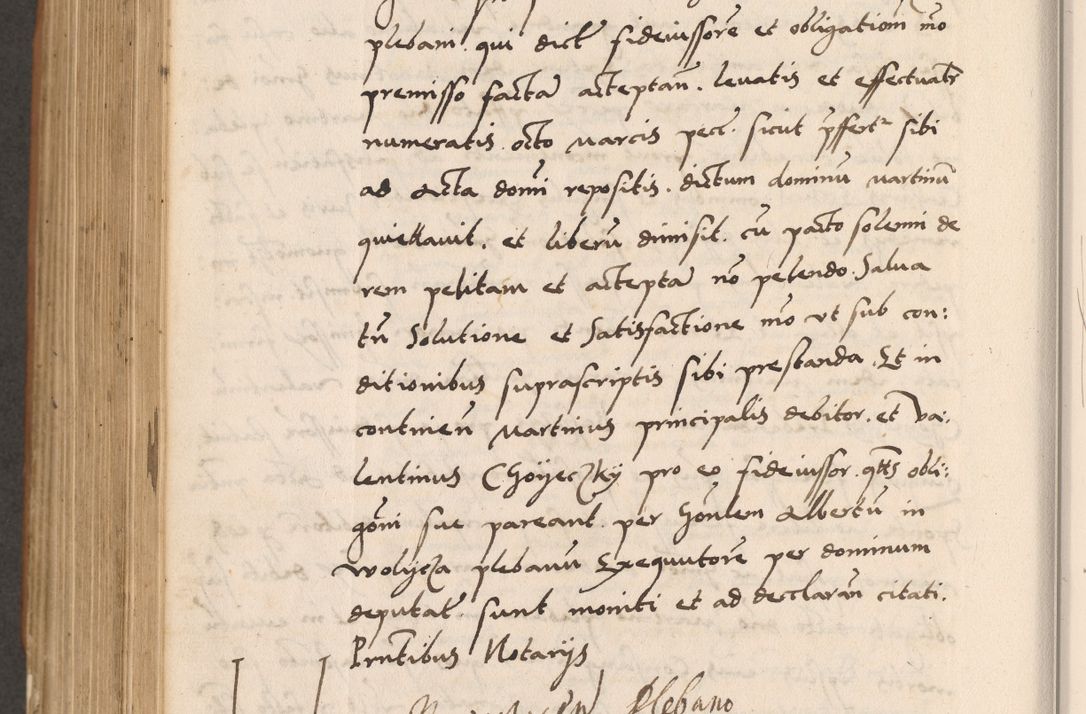 plebani qui dict fideiussorē et obligationī mō
premisso facta acceptan. levatis et effectuatr
numeratis octo marcis pec. sicut pffertr sibi
ad Acta domi repositis. dictum dominū martinū
quiettavit. et liberū dimisit. cū pacto solenni de
rem petitam et accepta nō petendo. Salva
tn Solutione et Satisfactione mō ut sub con:
ditionibus suprascriptis sibi prestanda. Et in
continen martinus principalis debitor. et Va:
lentinus Choyeczky pro eo fideiussor. qtts obli:
goni sue pareant. per honlem Albertū in
wolycza plebanū Exequutorē per dominum
deputat sunt moniti et ad declaran citati.
Prntibus Notarijs
Plebano